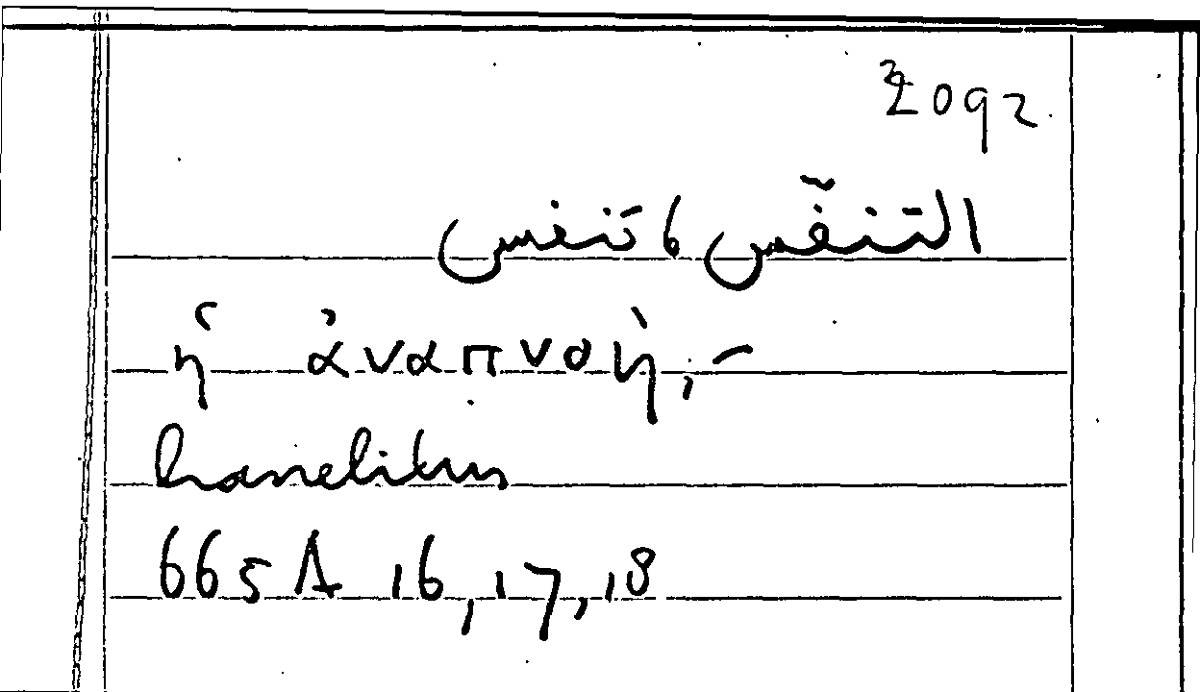 2092
التنفّس ، تَنفس
ἡ ἀναπνοὴ,-
hanelitus
665 A 16,17,18